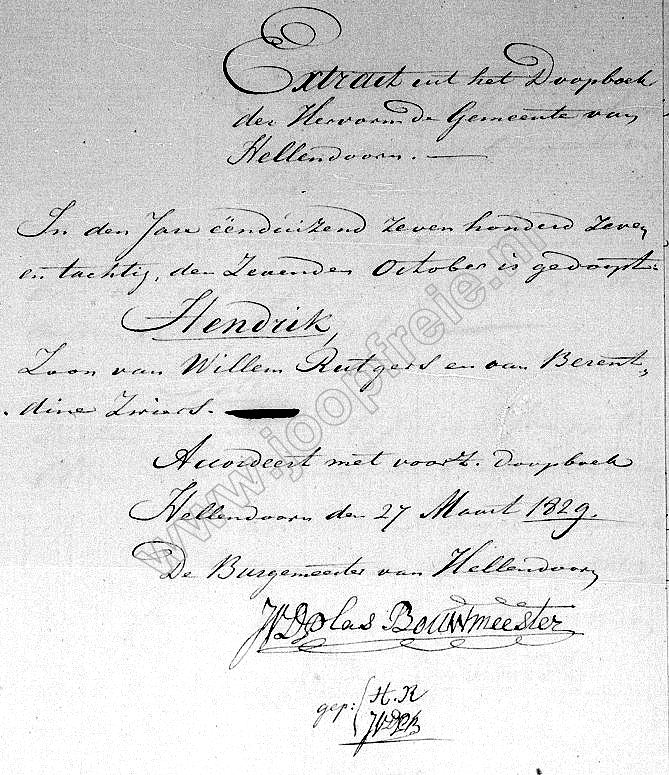 Extract uit het Doopboek
der Hervormde Gemeente van
Hellendoorn. —
In den Jare ëénduizend zeven honderd zeven
en tachtig, den Zevenden October is gedoopt:
Hendrik,
Zoon van Willem Rutgers en van Berent„
dine Zwiers.
Accordeert met voorz. doopboek
Hellendoorn den 27 Maart 1829.
De Burgemeester van Hellendoorn
Plas Bouwmeester
gep: H. R
www.joopfreie.nl